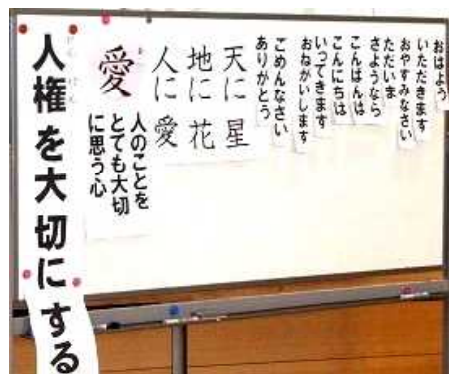 おはよう
いただきます
おやすみなさい
ただいま
さようなら
こんばんは
こんにちは
いってきます
おねがいします
ごめんなさい
ありがとう
天に星
地に花
人に愛
愛
あい
人のことを
とても大切
に思う心
人権を大切にする
じんけん